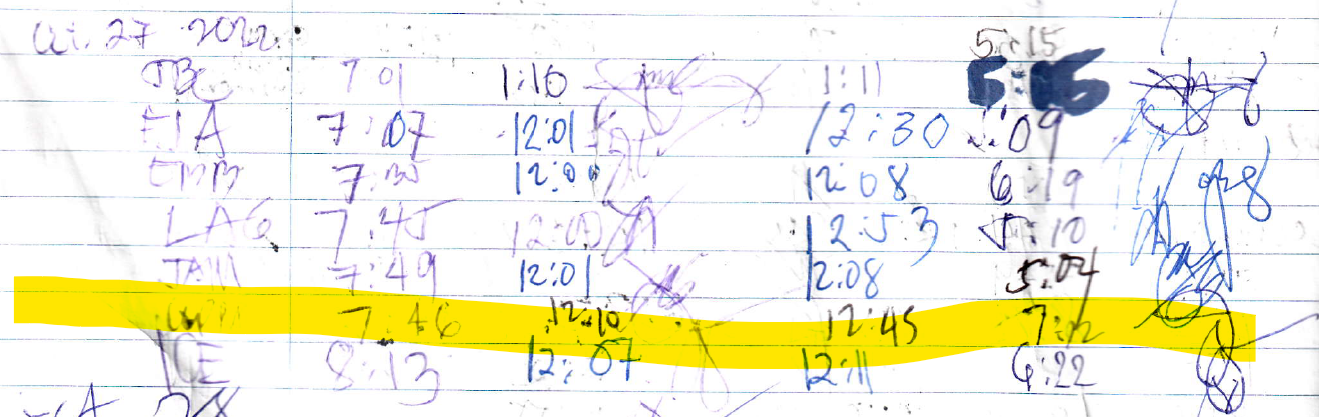 Oct. 27 2022
5:15
JBC 7 01 1:10 1:11
EJA 7:07 12:01 12:30 5:09
EBB 12:08 6:19
LAG 7:45 12:00 12:53 5:10
JAM 7:49 12:01 12:08 5:04
7:46 12:10 12:45
ICE 8:13 12:07 12:11 6:22
28